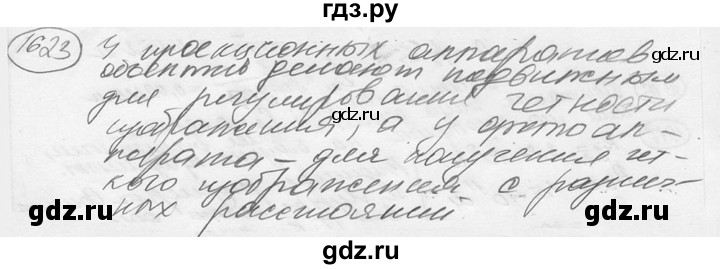 гдз.ру
1623 У проекционных аппаратов
объектив делают подвижным
для регулирования четкости
изображения, а у фотоап-
парата – для получения чет-
кого изображения с различ-
ных расстояний
gdz.ru gdz.ru gdz.ru
gdz.ru gdz.ru gdz.ru